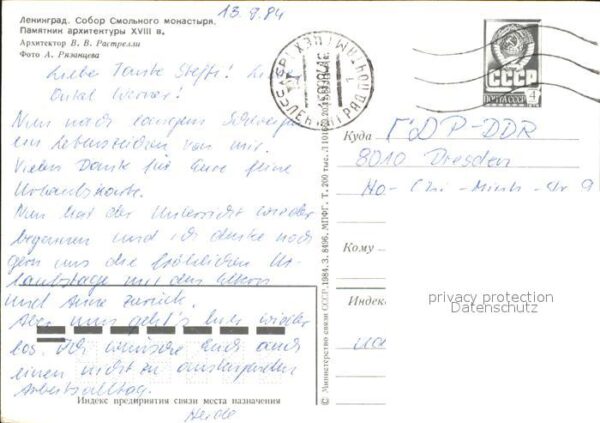 13.9.84
Ленинград. Собор Смольного монастыря.
Памятник архитектуры XVIII в.
Архитектор В. В. Растрелли
Фото А. Рязанцева
Liebe Tante Steffi! Lieber
Onkel Werner!
Nun nach langem Schweigen
ein Lebenszeichen von mir.
Vielen Dank für Eure feine
Urlaubskarte.
Nun hat der Unterricht wieder
begonnen und ich denke noch
gern an die fröhlichen Ur-
laubstage mit den Eltern
und Anne zurück.
Aber nun geht's hier wieder
los. Ich wünsche Euch auch
einen nicht zu anstrengenden
Arbeitsalltag.
Heide
Индекс предприятия связи места назначения
© Министерство связи СССР. 1984. З. 8496. МПФГ. т. 200 тыс.
СССР
ПОЧТА СССР 4
Куда ГДР-DDR
8010 Dresden
Ho-Chi-Minh-Str 9
Кому
Индекс
privacy protection
Datenschutz